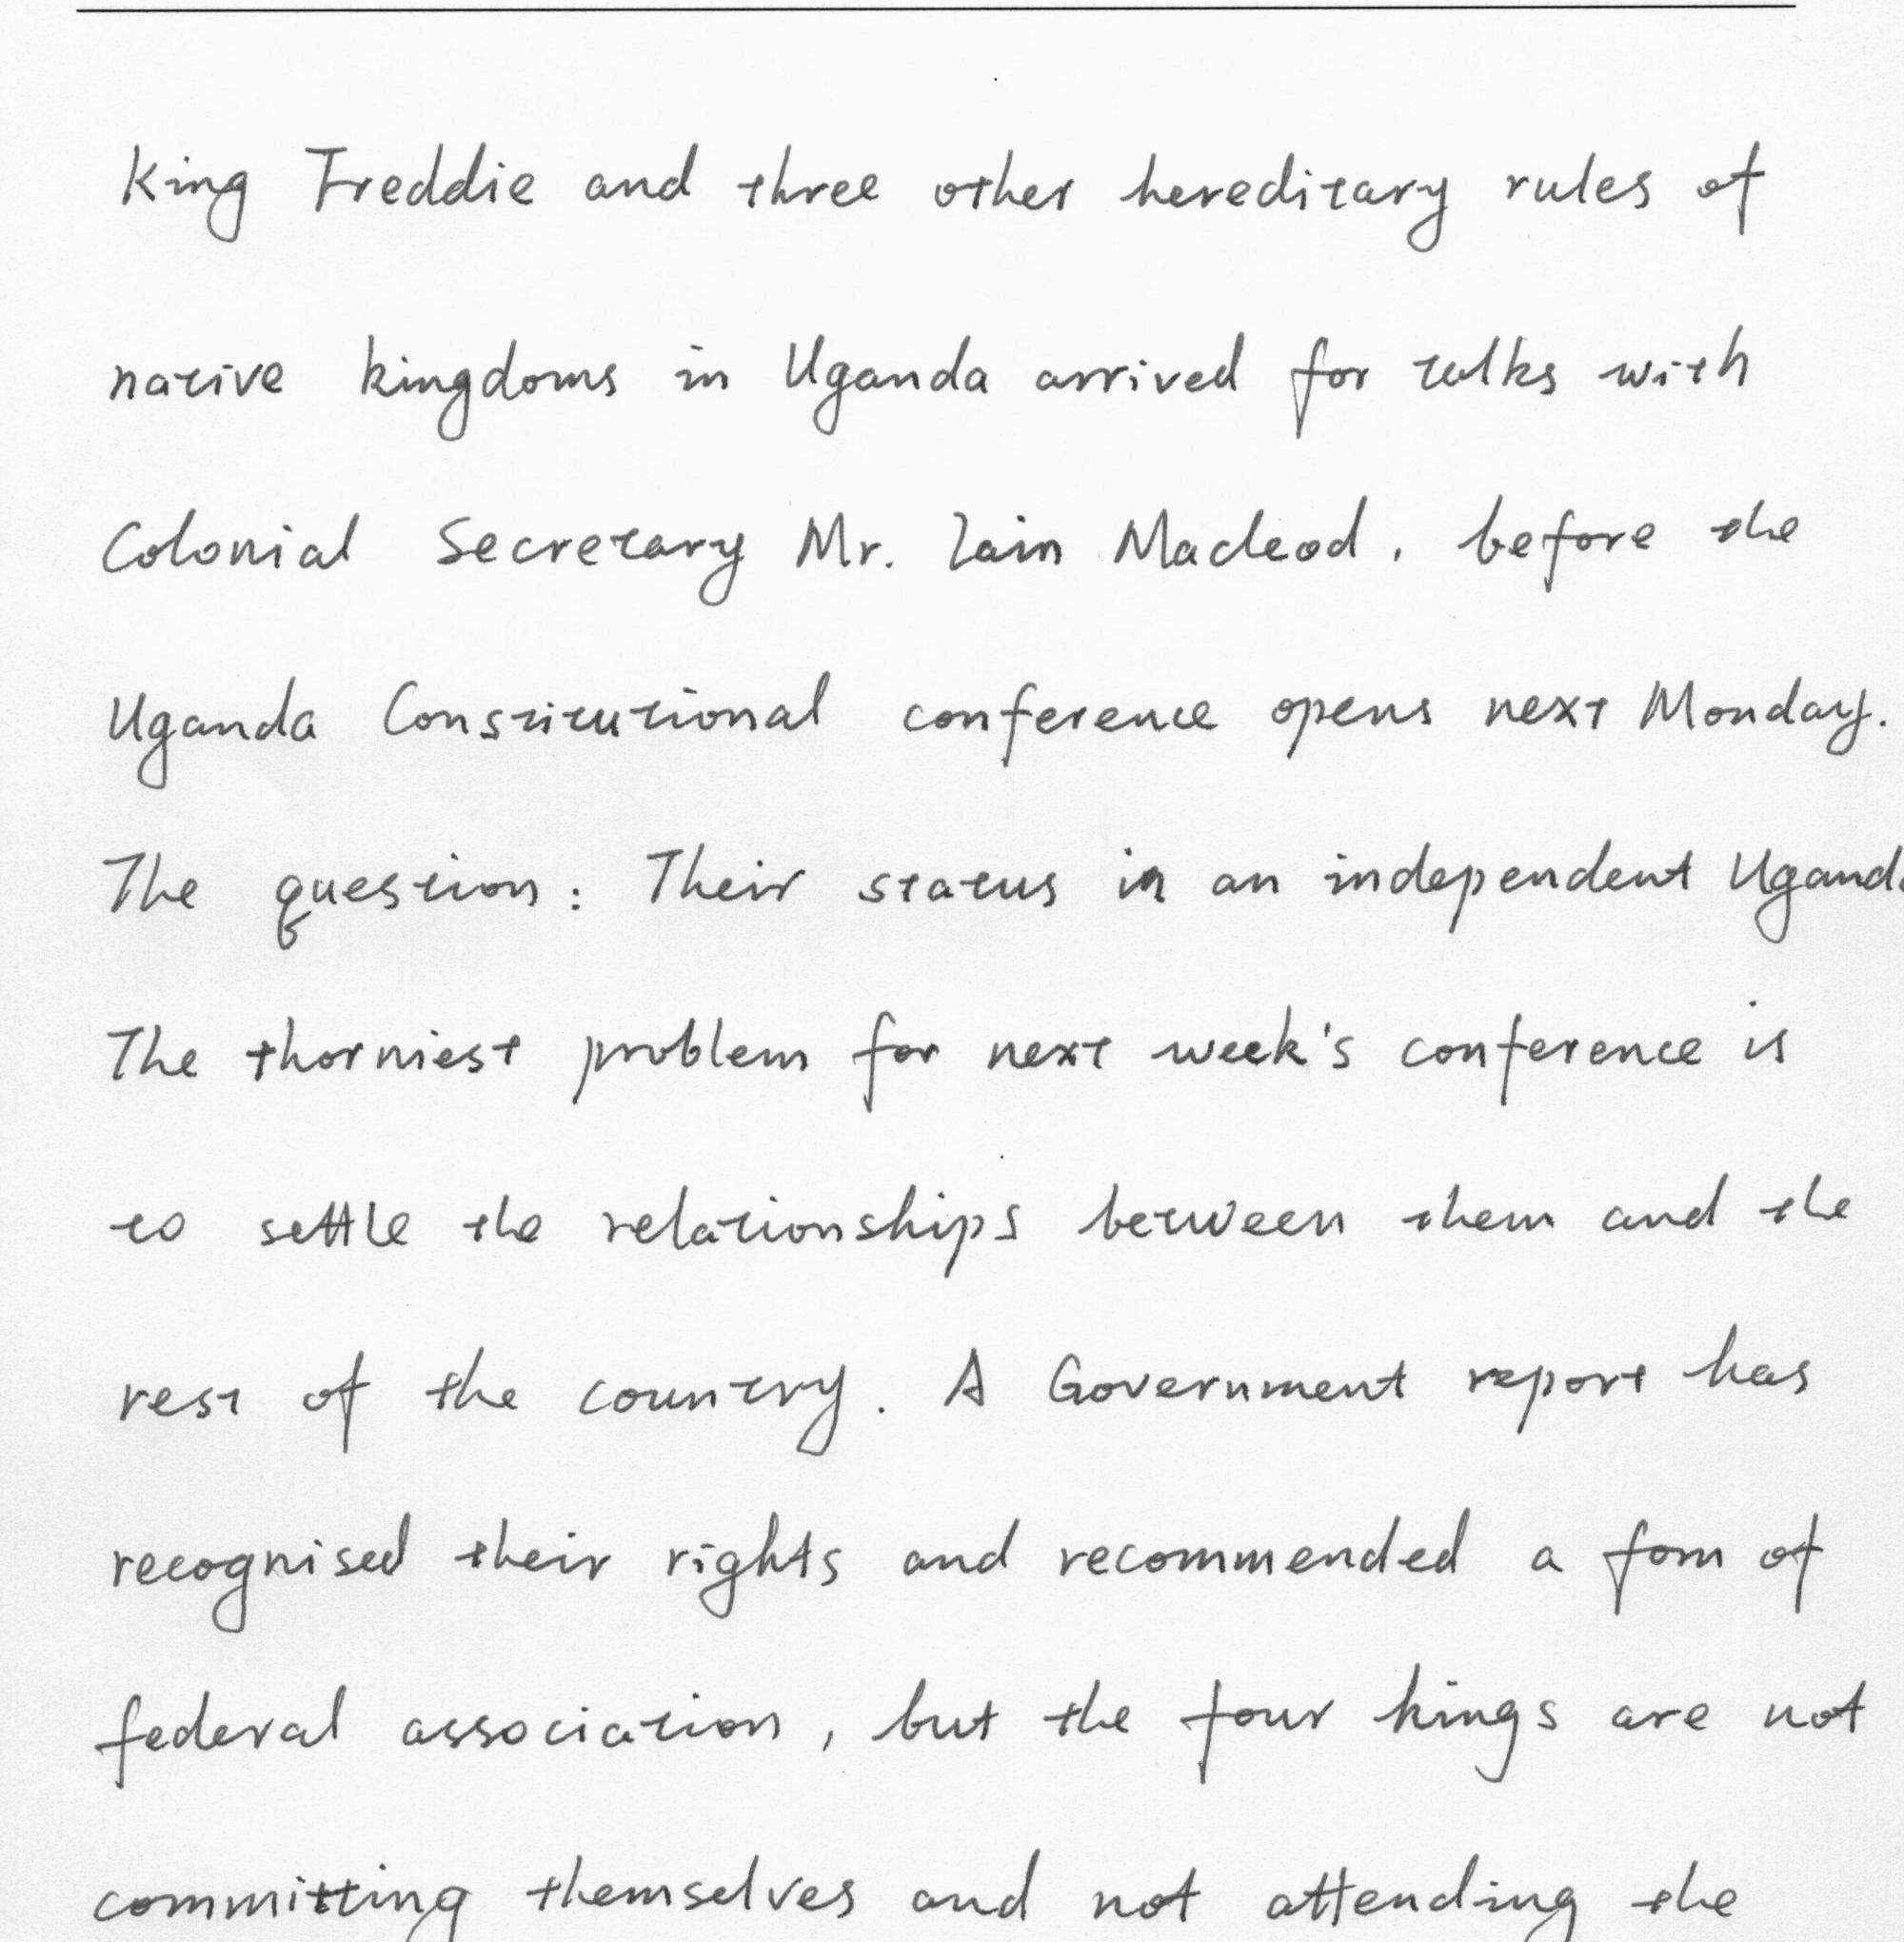 King Freddie and three other hereditary rules of
native kingdoms in Uganda arrived for talks with
Colonial Secretary Mr. Iain Macleod, before the
Uganda Constitutional conference opens next Monday.
The question: Their status in an independent Uganda
The thorniest problem for next week's conference is
to settle the relationships between them and the
rest of the country. A Government report has
recognised their rights and recommended a fom of
federal association, but the four kings are not
committing themselves and not attending the